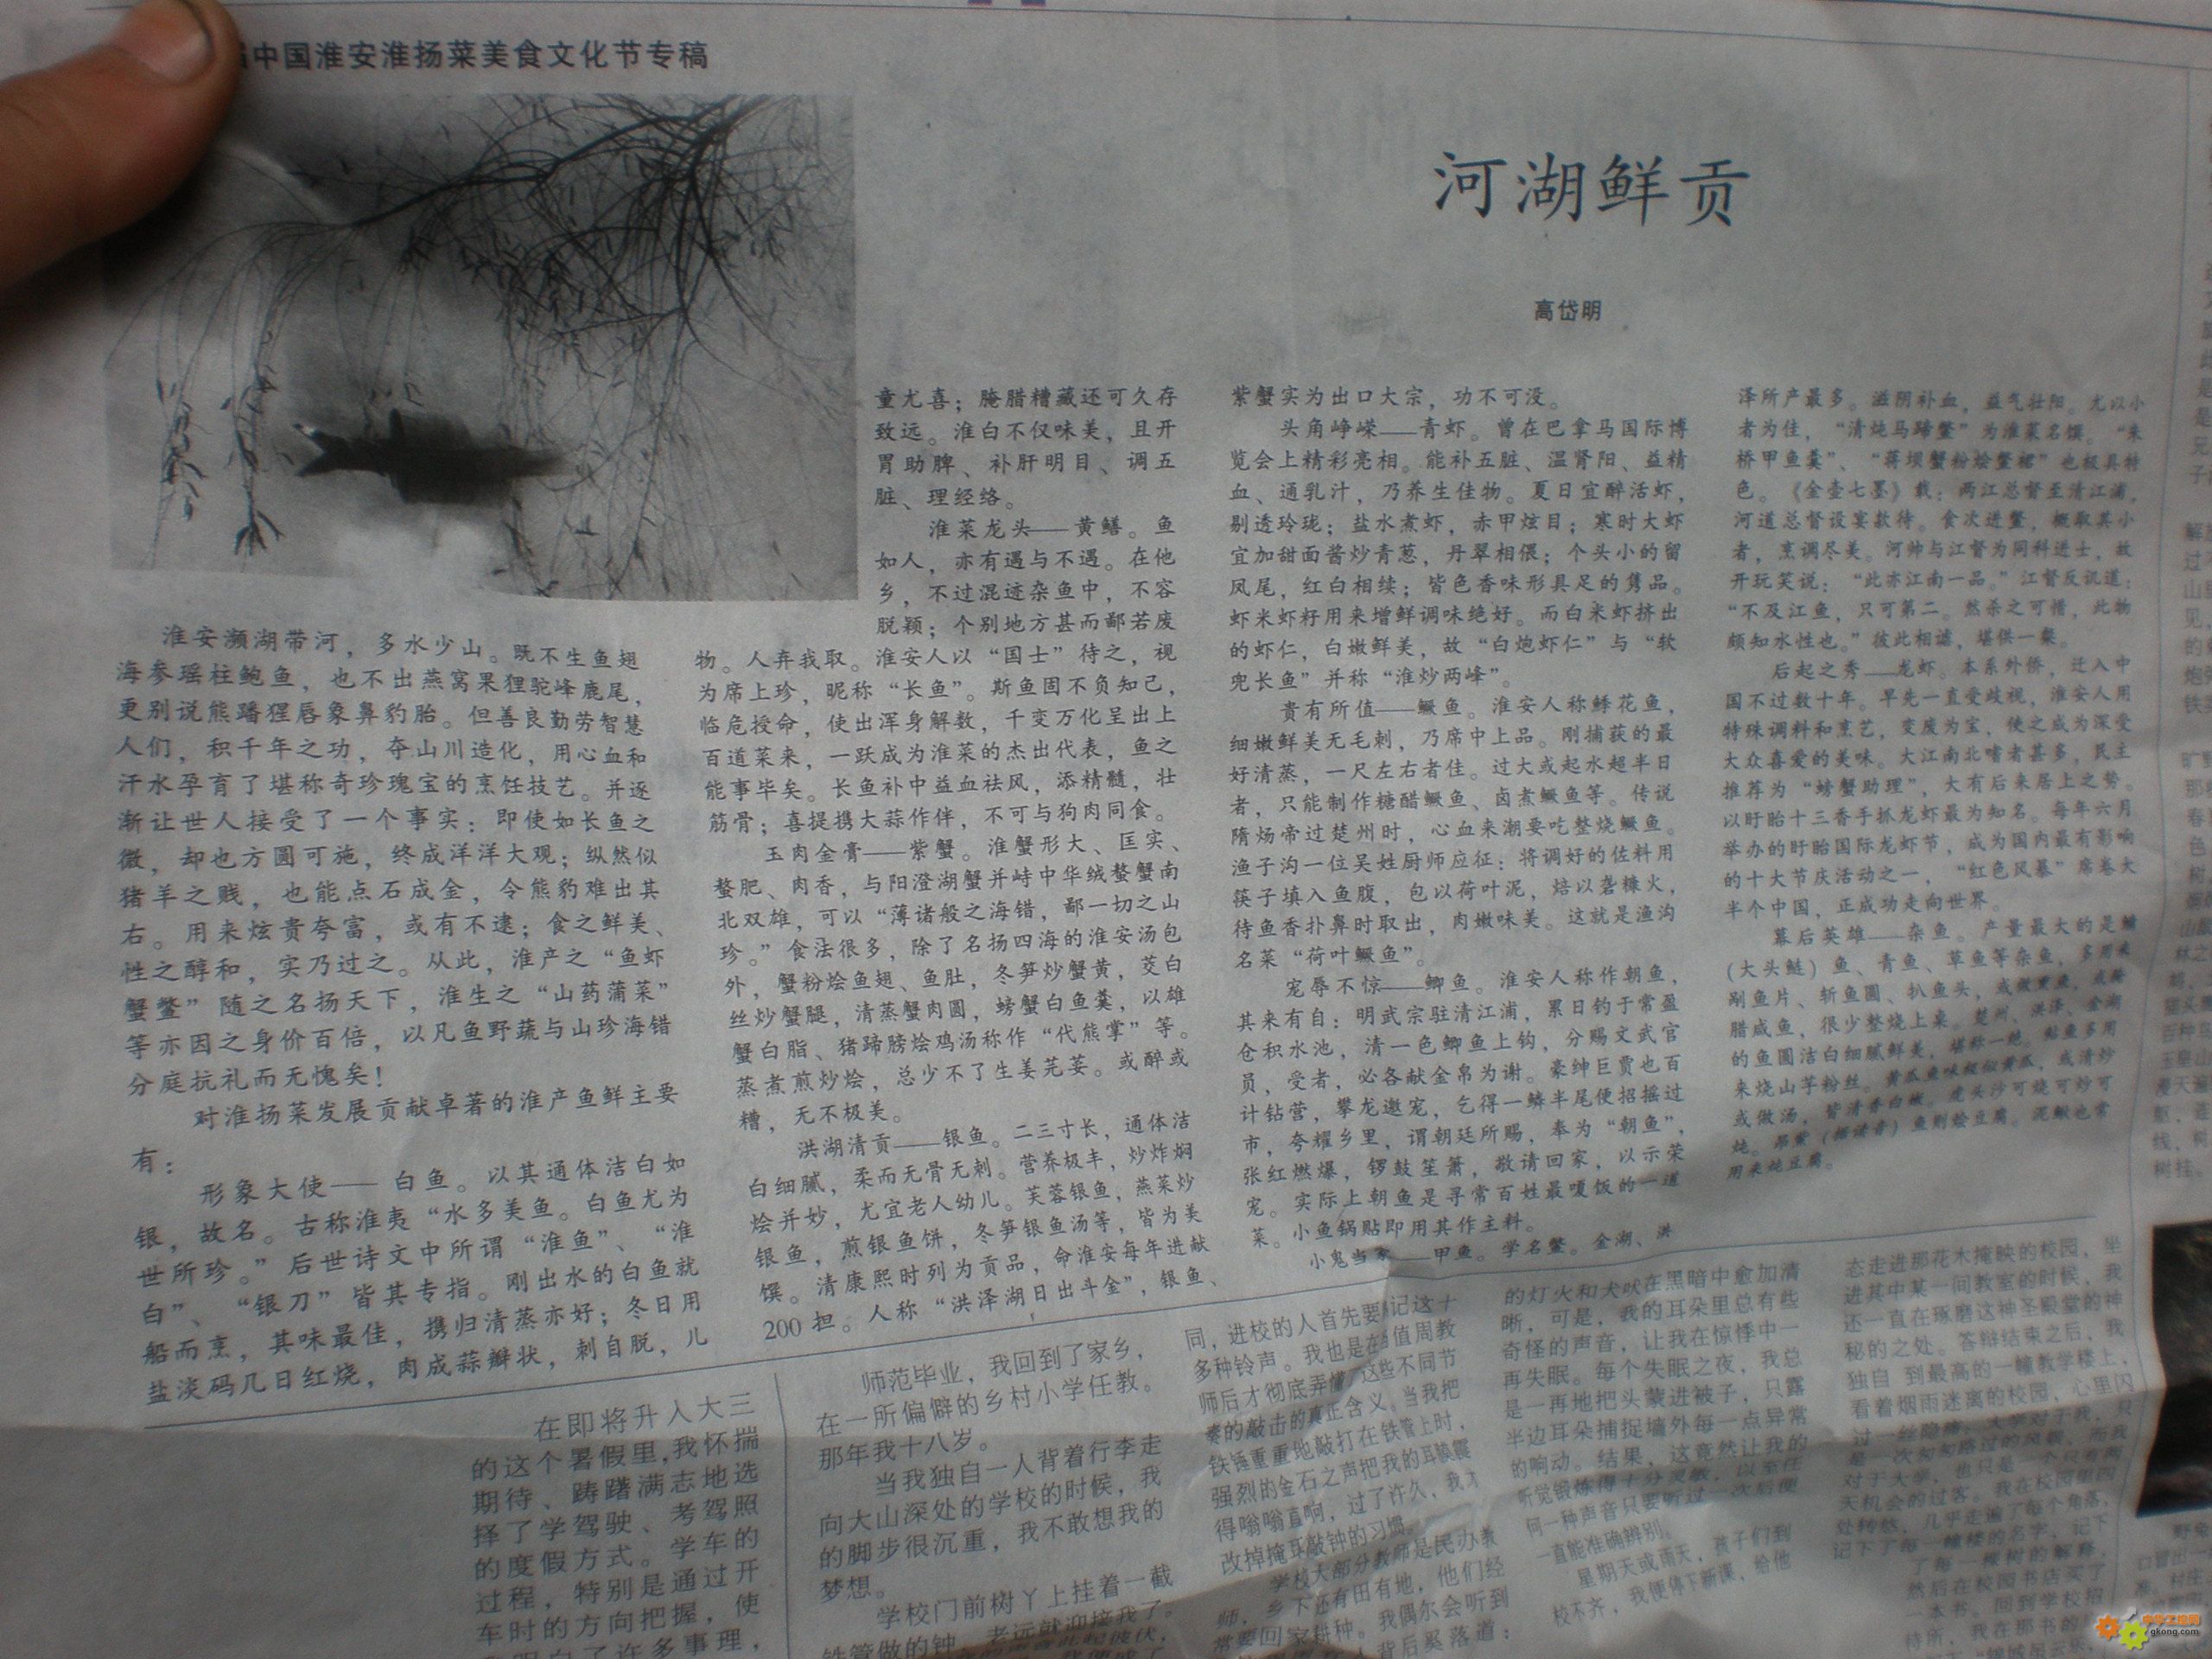 中国淮安淮扬菜美食文化节专稿
河湖鲜贡
高岱明
淮安濒湖带河，多水少山。既不生鱼翅
海参瑶柱鲍鱼，也不出燕窝果狸驼峰鹿尾，
更别说熊蹯猩唇象鼻豹胎。但善良勤劳智慧
人们，积千年之功，夺山川造化，用心血和
汗水孕育了堪称奇珍瑰宝的烹饪技艺。并逐
渐让世人接受了一个事实：即使如长鱼之
微，却也方圆可施，终成洋洋大观；纵然似
猪羊之贱，也能点石成金，令熊豹难出其
右。用来炫贵夸富，或有不逮；食之鲜美、
性之醇和，实乃过之。从此，淮产之“鱼虾
蟹鳖”随之名扬天下，淮生之“山药蒲菜”
等亦因之身价百倍，以凡鱼野蔬与山珍海错
分庭抗礼而无愧矣！
对淮扬菜发展贡献卓著的淮产鱼鲜主要
有：
形象大使——白鱼。以其通体洁白如
银，故名。古称淮夷“水多美鱼。白鱼尤为
世所珍。”后世诗文中所谓“淮鱼”、“淮
白”、“银刀”皆其专指。刚出水的白鱼就
船而烹，其味最佳，携归清蒸亦好；冬日用
盐淡码几日红烧，肉成蒜瓣状，刺自脱，儿
童尤喜；腌腊糟藏还可久存
致远。淮白不仅味美，且开
胃助脾、补肝明目、调五
脏、理经络。
淮菜龙头——黄鳝。鱼
如人，亦有遇与不遇。在他
乡，不过混迹杂鱼中，不容
脱颖；个别地方甚而鄙若废
物。人弃我取。淮安人以“国士”待之，视
为席上珍，昵称“长鱼”。斯鱼固不负知己，
临危授命，使出浑身解数，千变万化呈出上
百道菜来，一跃成为淮菜的杰出代表，鱼之
能事毕矣。长鱼补中益血祛风，添精髓，壮
筋骨；喜提携大蒜作伴，不可与狗肉同食。
玉肉金膏——紫蟹。淮蟹形大、匡实、
螯肥、肉香，与阳澄湖蟹并峙中华绒螯蟹南
北双雄，可以“薄诸般之海错，鄙一切之山
珍。”食法很多，除了名扬四海的淮安汤包
外，蟹粉烩鱼翅、鱼肚，冬笋炒蟹黄，茭白
丝炒蟹腿，清蒸蟹肉圆，螃蟹白鱼羹，以雄
蟹白脂、猪蹄膀烩鸡汤称作“代熊掌”等。
蒸煮煎炒烩，总少不了生姜芫荽。或醉或
糟，无不极美。
洪湖清贡——银鱼。二三寸长，通体洁
白细腻，柔而无骨无刺。营养极丰，炒炸焖
烩并妙，尤宜老人幼儿。芙蓉银鱼，燕菜炒
银鱼，煎银鱼饼，冬笋银鱼汤等，皆为美
馔。清康熙时列为贡品，命淮安每年进献
200担。人称“洪泽湖日出斗金”，银鱼、
紫蟹实为出口大宗，功不可没。
头角峥嵘——青虾。曾在巴拿马国际博
览会上精彩亮相。能补五脏、温肾阳、益精
血、通乳汁，乃养生佳物。夏日宜醉活虾，
剔透玲珑；盐水煮虾，赤甲炫目；寒时大虾
宜加甜面酱炒青葱，丹翠相偎；个头小的留
凤尾，红白相续；皆色香味形具足的隽品。
虾米虾籽用来增鲜调味绝好。而白米虾挤出
的虾仁，白嫩鲜美，故“白炮虾仁”与“软
兜长鱼”并称“淮炒两峰”。
贵有所值——鳜鱼。淮安人称鯚花鱼，
细嫩鲜美无毛刺，乃席中上品。刚捕获的最
好清蒸，一尺左右者佳。过大或起水超半日
者，只能制作糖醋鳜鱼、卤煮鳜鱼等。传说
隋炀帝过楚州时，心血来潮要吃整烧鳜鱼。
渔子沟一位吴姓厨师应征：将调好的佐料用
筷子填入鱼腹，包以荷叶泥，焙以砻糠火，
待鱼香扑鼻时取出，肉嫩味美。这就是渔沟
名菜“荷叶鳜鱼”。
宠辱不惊——鲫鱼。淮安人称作朝鱼，
其来有自：明武宗驻清江浦，累日钓于常盈
仓积水池，清一色鲫鱼上钩，分赐文武官
员，受者，必各献金帛为谢。豪绅巨贾也百
计钻营，攀龙邀宠，乞得一鳞半尾便招摇过
市，夸耀乡里，谓朝廷所赐，奉为“朝鱼”，
张红燃爆，锣鼓笙箫，敬请回家，以示荣
宠。实际上朝鱼是寻常百姓最嗄饭的一道
菜。小鱼锅贴即用其作主料。
小鬼当家——甲鱼。学名鳖。金湖、洪
泽所产最多。滋阴补血，益气壮阳。尤以小
者为佳，“清炖马蹄鳖”为淮菜名馔。“朱
桥甲鱼羹”、“蒋坝蟹粉烩鳖裙”也极具特
色。《金壶七墨》载：两江总督至清江浦，
河道总督设宴款待。食次进鳖，概取其小
者，烹调尽美。河帅与江督为同科进士，故
开玩笑说：“此亦江南一品。”江督反讥道：
“不及江鱼，只可第二。然杀之可惜，此物
颇知水性也。”彼此相谑，堪供一粲。
后起之秀——龙虾。本系外侨，迁入中
国不过数十年。早先一直受歧视，淮安人用
特殊调料和烹艺，变废为宝，使之成为深受
大众喜爱的美味。大江南北嗜者甚多，民主
推荐为“螃蟹助理”，大有后来居上之势。
以盱眙十三香手抓龙虾最为知名。每年六月
举办的盱眙国际龙虾节，成为国内最有影响
的十大节庆活动之一，“红色风暴”席卷大
半个中国，正成功走向世界。
幕后英雄——杂鱼。产量最大的是鳙
（大头鲢）鱼、青鱼、草鱼等杂鱼，多用来
剐鱼片、斩鱼圆、扒鱼头，或做熏鱼，或腌
腊咸鱼，很少整烧上桌。楚州、洪泽、金湖
的鱼圆洁白细腻鲜美，堪称一绝。鲇鱼多用
来烧山芋粉丝。黄瓜鱼味极似黄瓜，或清炒
或做汤，皆清香白嫩。虎头沙可烧可炒可
炖。昂紫（据读音）鱼则烩豆腐。泥鳅也常
用来炖豆腐。
在即将升入大三
的这个暑假里，我怀揣
期待、踌躇满志地选
择了学驾驶、考驾照
的度假方式。学车的
过程，特别是通过开
车时的方向把握，使
师范毕业，我回到了家乡，
在一所偏僻的乡村小学任教。
那年我十八岁。
当我独自一人背着行李走
向大山深处的学校的时候，我
的脚步很沉重，我不敢想我的
梦想。
学校门前树丫上挂着一截
铁管做的钟，老远就迎接我了。
同，进校的人首先要记这十
多种铃声。我也是在值周教
师后才彻底弄懂这些不同节
奏的敲击的真正含义。当我把
铁锤重重地敲打在铁管上时，
强烈的金石之声把我的耳膜震
得嗡嗡直响，过了许久，我才
改掉掩耳敲钟的习惯。
学校大部分教师是民办教
师，乡下还有田有地，他们经
常要回家耕种。我偶尔会听到
背后奚落道：
的灯火和犬吠在黑暗中愈加清
晰，可是，我的耳朵里总有些
奇怪的声音，让我在惊悸中一
再失眠。每个失眠之夜，我总
是一再地把头蒙进被子，只露
半边耳朵捕捉墙外每一点异常
的响动。结果，这竟然让我的
听觉锻炼得十分灵敏，以至任
何一种声音只要听过一次后便
一直能准确辨别。
星期天或雨天，孩子们到
校不齐，我便停下新课，给他
态走进那花木掩映的校园，坐
进其中某一间教室的时候，我
还一直在琢磨这神圣殿堂的神
秘的之处。答辩结束之后，我
独自到最高的一幢教学楼上，
看着烟雨迷离的校园，心里闪
过一丝隐痛。大学对于我，只
是一次匆匆路过的风景，而我
对于大学，也只是一个只有两
天机会的过客。我在校园里四
处转悠，几乎走遍了每个角落，
记下了每一幢楼的名字，记下
了每一棵树的解释，
然后在校园书店买了
一本书。回到学校招
待所，我在那书的
gkong.com